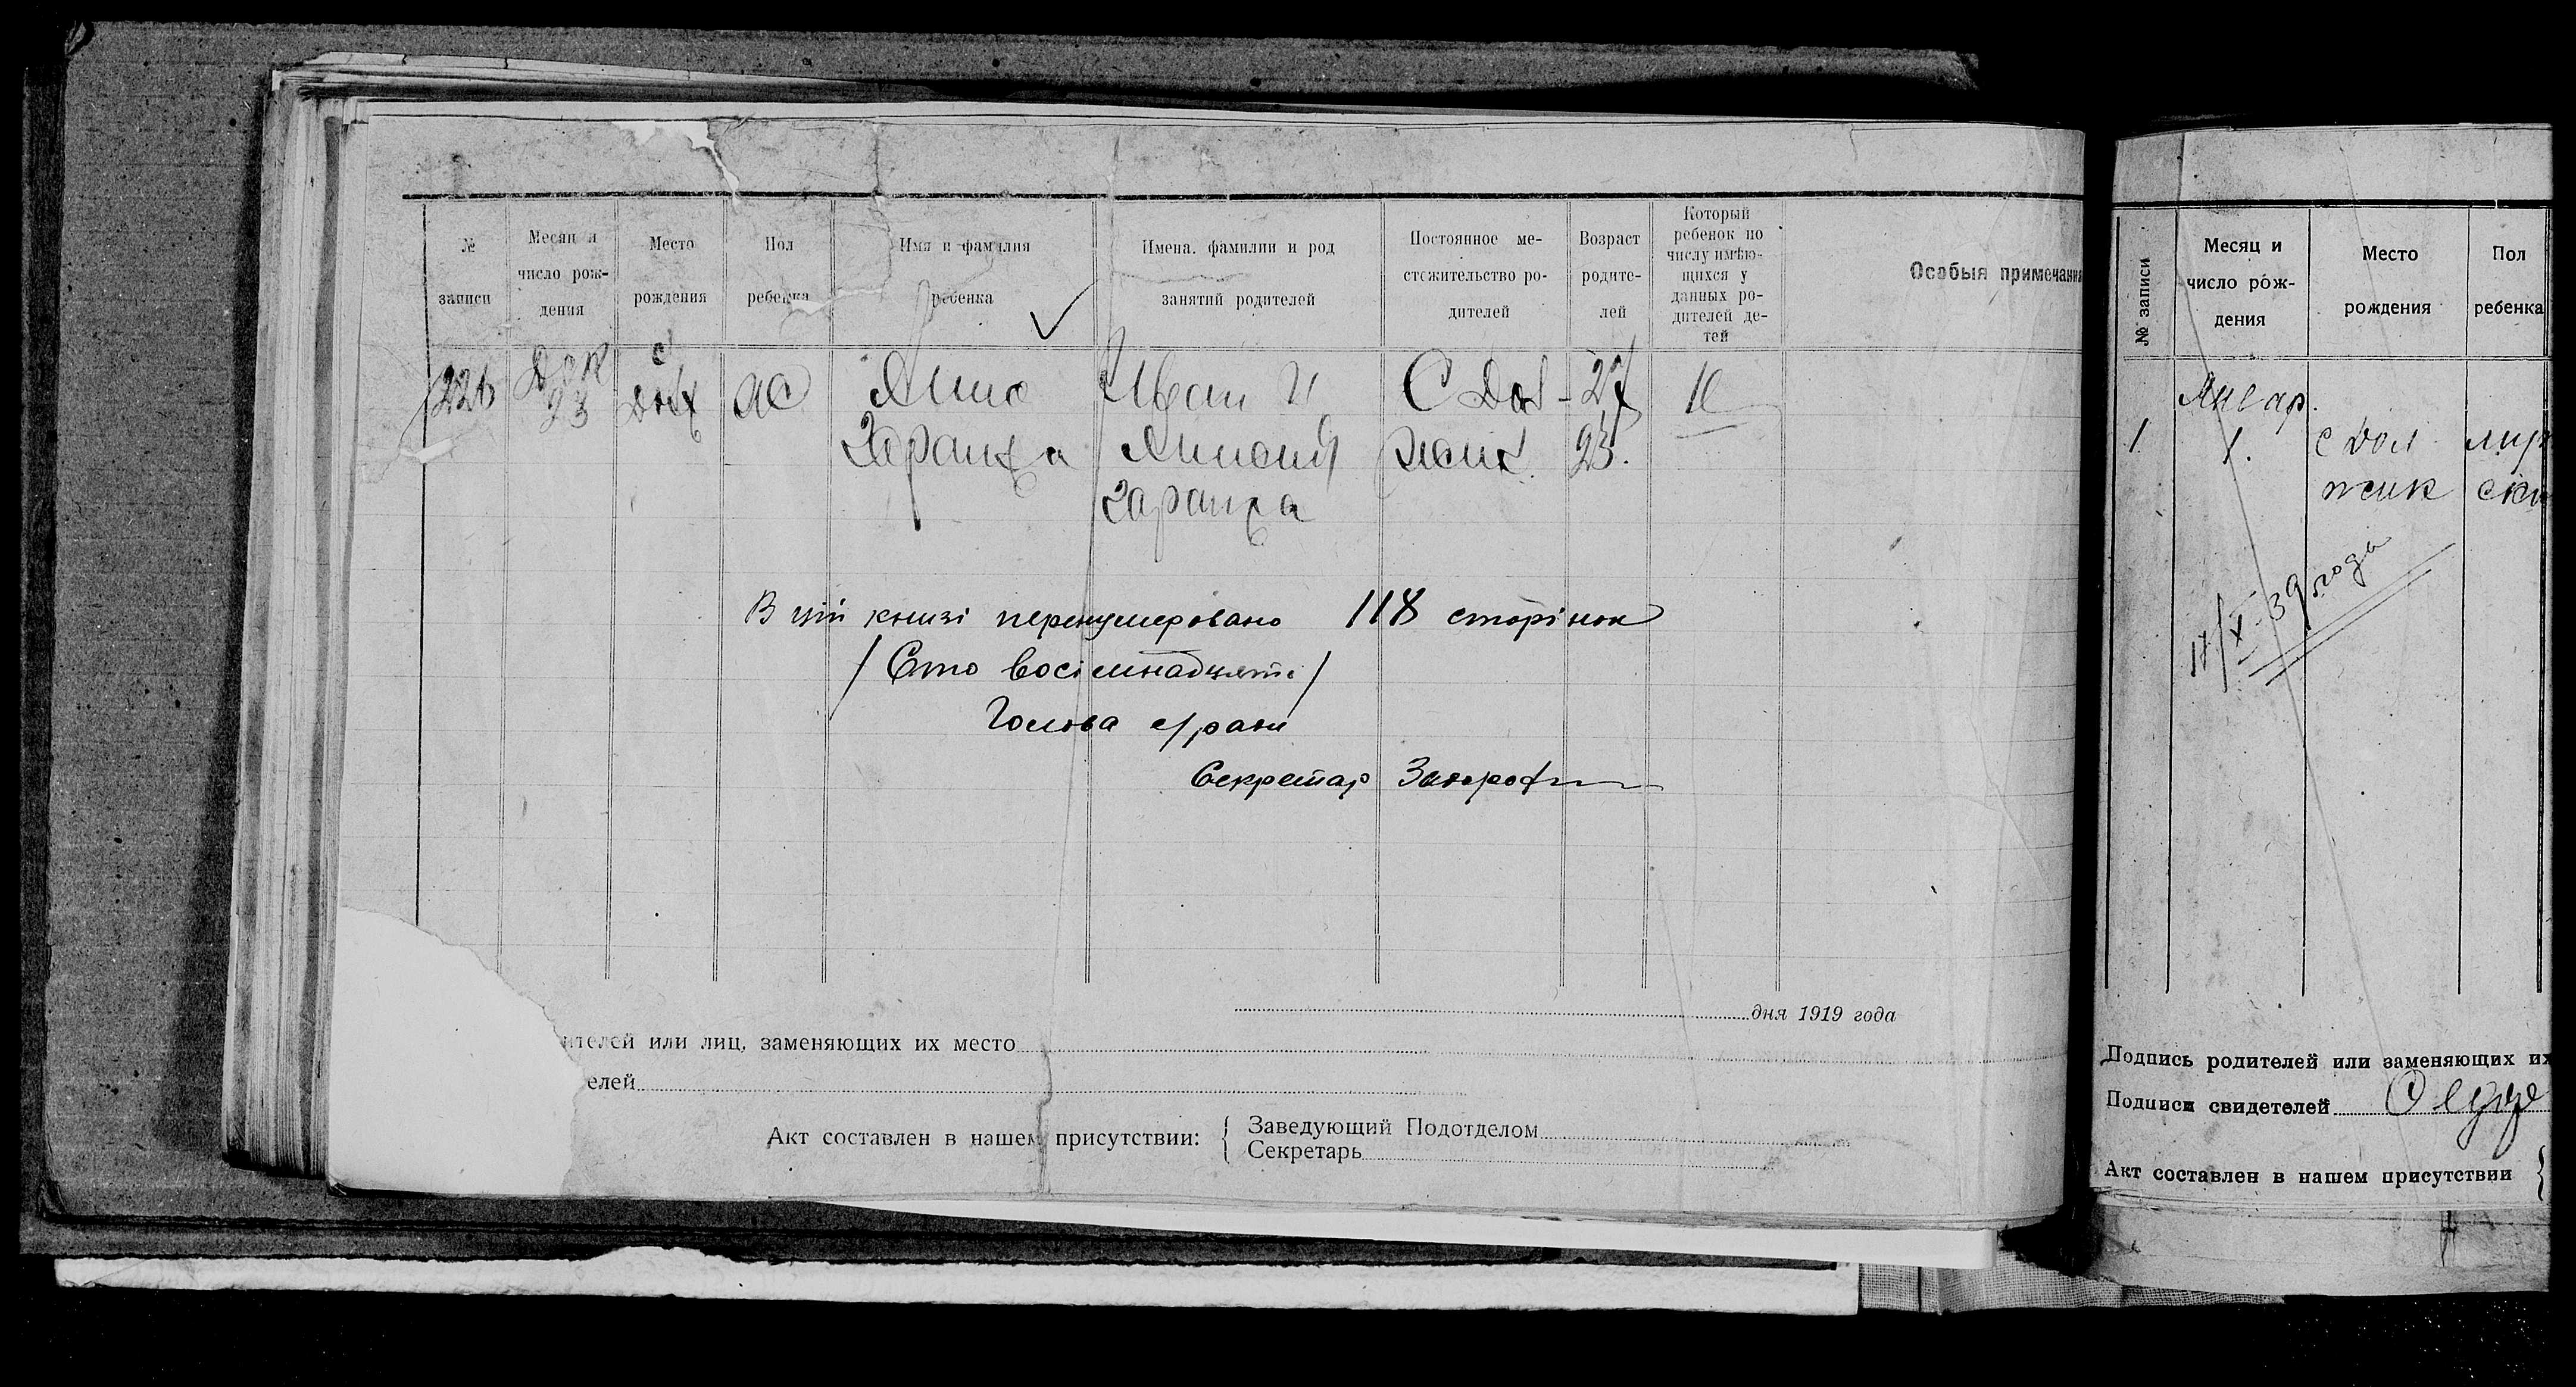 №
записи
Месяц и
число рож-
дения
Место
рождения
Пол
ребенка
Имя и фамилия
ребенка
Имена, фамилии и род
занятий родителей
Постоянное ме-
стожительство ро-
дителей
Возраст
родите-
лей
Который
ребенок по
числу имѣю-
щихся у
данных ро-
дителей де-
тей
Особыя примечания
226
Дек
23
с
27
Иван и
с Дол
23.
В цій книзі перенумеровано 118 сторінок
/ Сто восімнадцять /
Голова с/ради
Секретар
дня 1919 года
ителей или лиц, заменяющих их место
елей
Акт составлен в нашем присутствии:
Заведующий Подотделом
Секретарь
№ записи
Месяц и
число рож-
дения
Место
рождения
Пол
ребенка
Январ.
1 1. с Дол муж
жик ски
17/X-39 года
Подпись родителей или заменяющих их
Подписи свидетелей
Акт составлен в нашем присутствии